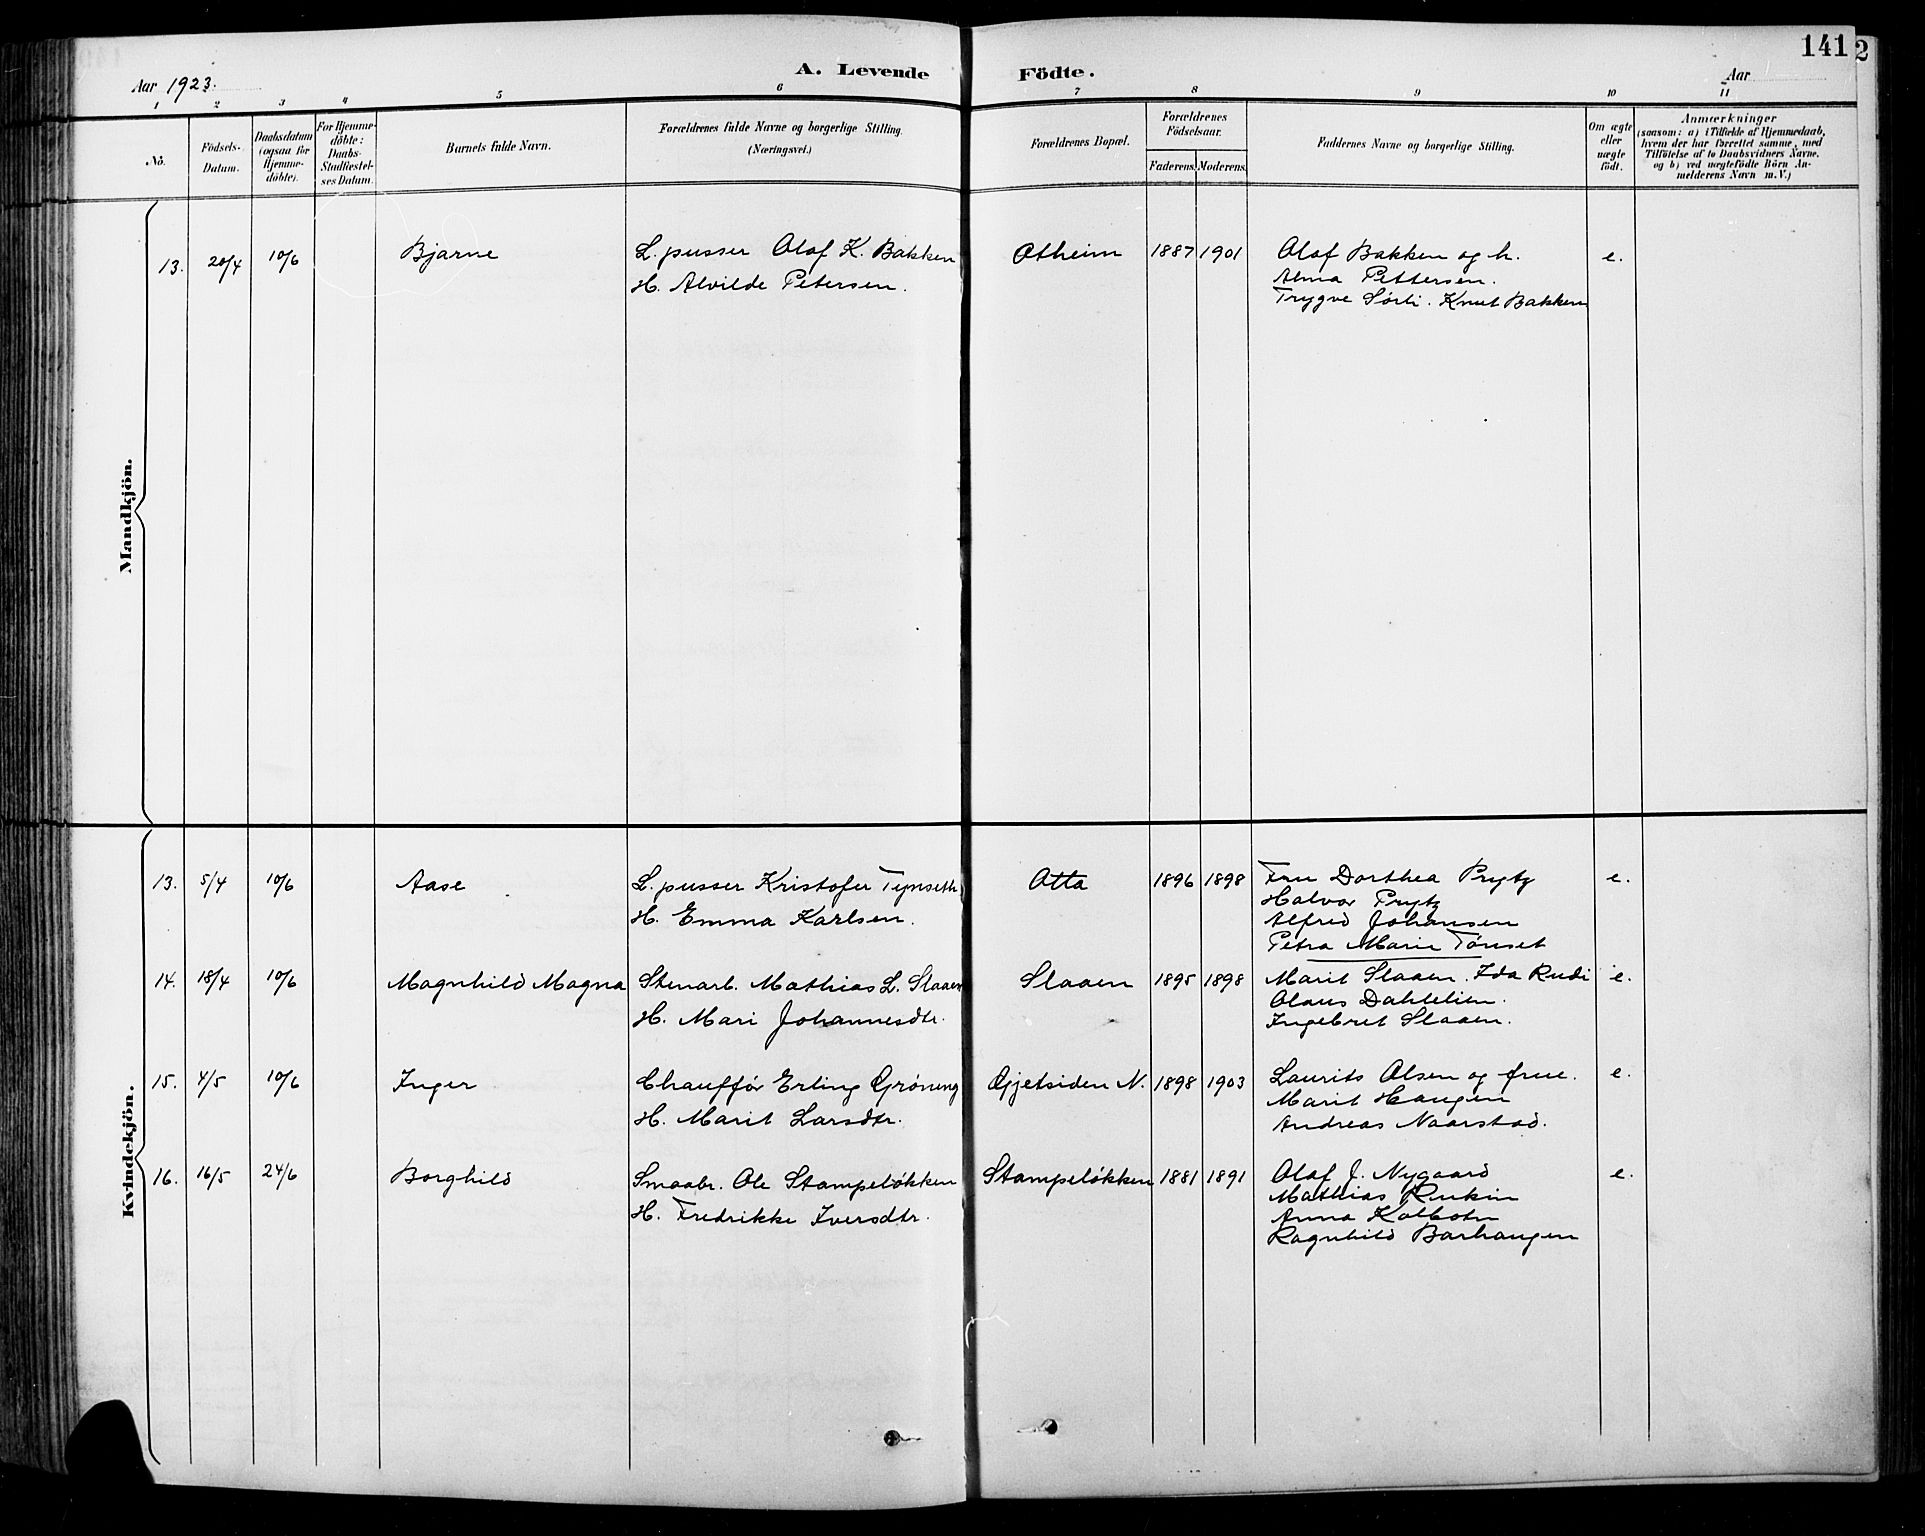 141
2
Aar 1923.
A. Levende Födte.
Aar
1 2 3 4 5 6 7 8 9 10 11
No.
Födsels-Datum.
Daabsdatum (ogsaa for Hjemme-döbte).
For Hjemme-döbte: Daabs-Stadfæstel-ses Datum.
Barnets fulde Navn.
Forældrenes fulde Navne og borgerlige Stilling. (Næringsvei.)
Forældrenes Bopæl.
Forældrenes Födselsaar.
Faderens. Moderens.
Faddernes Navne og borgerlige Stilling.
Om ægte eller uægte födt.
Anmærkninger
(saasom: a) i Tilfælde af Hjemmedaab,
hvem der har forrettet samme, med
Tilföielse af to Daabsvidners Navne.
og b) ved uægtefödte Börn An-
melderens Navn m. V.)
Mandkjön.
13. 20/4 10/6 Bjarne L. pusser Olaf K. Bakken Otheim 1887 1901 Olaf Bakken og h. e.
H. Alvilde Petersen. Alma Pettersen.
Trygve Sørli. Knut Bakken
Kvindekjön.
13. 5/4 10/6 Aase L. pusser Kristofer Tynseth Otta 1896 1898 Fru Dorthea Prytz e.
H. Emma Karlsen. Halvor Prytz
Alfred Johansen
Petra Marie Tønset
14. 18/4 10/6 Magnhild Magna Stenarb. Mathias L. Slaaen Slaaen 1895 1898 Marit Slaaen. Ida Rudi e.
H. Mari Johannesdtr. Olaus Dahlelien.
Ingebret Slaaen.
15. 4/5 10/6 Inger Chauffør Erling Grøneng Gjetsiden N. 1898 1903 Laurits Olsen og frue. e.
H. Marit Larsdtr. Marit Haugen
Andreas Naarstad.
16. 16/5 24/6 Borghild Smaabr. Ole Stampeløkken Stampeløkken 1881 1891 Olaf J. Nygaard e.
H. Fredrikke Iversdtr. Mathias Rukin
Anna Kolbotn
Ragnhild Barhaugen